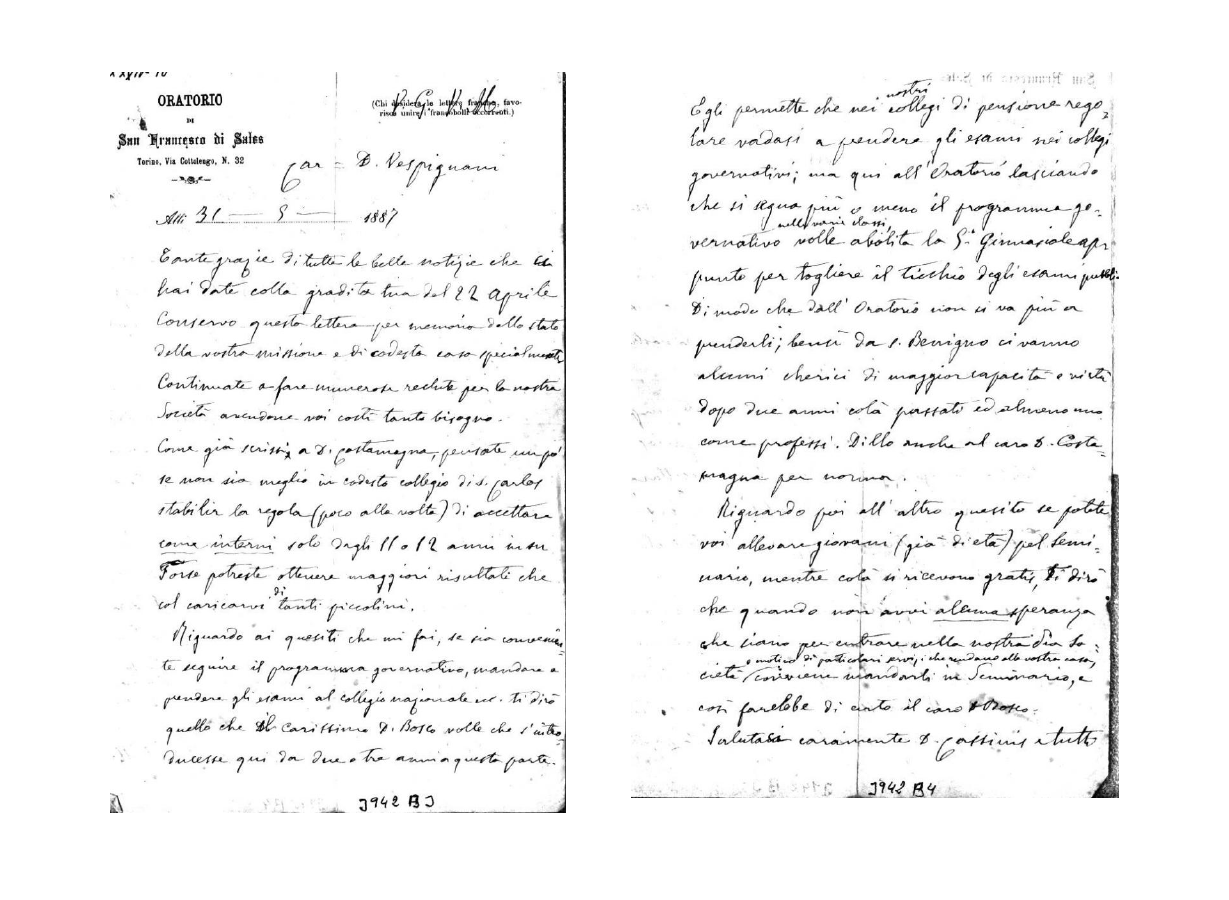 ORATORIO
DI
San Francesco di Sales
Torino, Via Cottolengo, N. 32
(Chi desidera le lettere franche, favo-
risca unire i francobolli occorrenti.)
V. G. V. M.
Car D. Vespignani
Alli 31 — 5 — 1887
Tante grazie di tutte le belle notizie che
hai date colla gradita tua del 22 Aprile
Conservo questa lettera per memoria dello stato
della vostra missione e di codesta casa specialmente
Continuate a fare numerose reclute per la nostra
Società avendone voi costì tanto bisogno.
Come già scrissi a D. Costamagna, pensate un po'
se non sia meglio in codesto collegio di S. Carlos
stabilir la regola (poco alla volta) di accettare
come interni solo dagli 11 o 12 anni in su
Forse potreste ottenere maggiori risultati che
col caricarvi di tanti piccolini.
Riguardo ai quesiti che mi fai, se sia convenien-
te seguire il programma governativo, mandare a
prendere gli esami al collegio nazionale ecc. ti dirò
quello che il Carissimo D. Bosco volle che s'intro-
ducesse qui da due o tre anni a questa parte.
1942 B3
Egli permette che nei nostri collegi di pensione rego-
lare vadasi a prendere gli esami nei collegi
governativi; ma qui all'Oratorio lasciando
che si segua più o meno il programma go-
nelle varie classi,
vernativo volle abolita la 5ª Ginnasiale ap-
punto per togliere il ticchio degli esami
Di modo che dall'Oratorio non si va più a
prenderli; bensì da S. Benigno ci vanno
alcuni cherici di maggior capacità e virtù
dopo due anni colà passati ed almeno uno
come professi. Dillo anche al caro D. Costa-
magna per norma.
Riguardo poi all'altro quesito se potete
voi allevare giovani (già di età) pel Semi-
nario, mentre colà si ricevono gratis, ti dirò
che quando non avvi alcuna speranza
che siano per entrare nella nostra Pia So-
o motivo di particolari servizi che rendano alla vostra casa,
cietà conviene mandarli in Seminario, e
così farebbe di certo il caro D. Bosco.
Salutasi caramente D. Cassinis e tutti
1942 B4